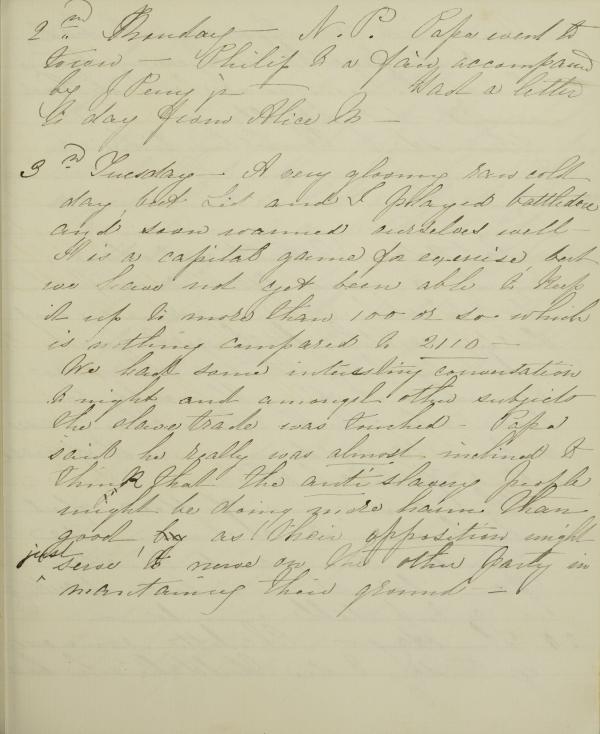 2nd Monday — N. P. Papa went to
town — Philip to a fair, accompand
by J Perry jr — Had a letter
to day from Alice M —
3rd Tuesday — A very gloomy raw cold
day, but Lid and I played battledore
and soon warmed ourselves well —
It is a capital game for exercise but
we have not yet been able to keep
it up to more than 100 or so which
is nothing compared to 2110 —
We had some interesting conversation
to night and amongst other subjects
the slave trade was touched — Papa
said he really was almost inclined to
think that the anti slavery people
might be doing more harm than
good by as their opposition might
just serve to nerve on the other party in
maintaining their ground —